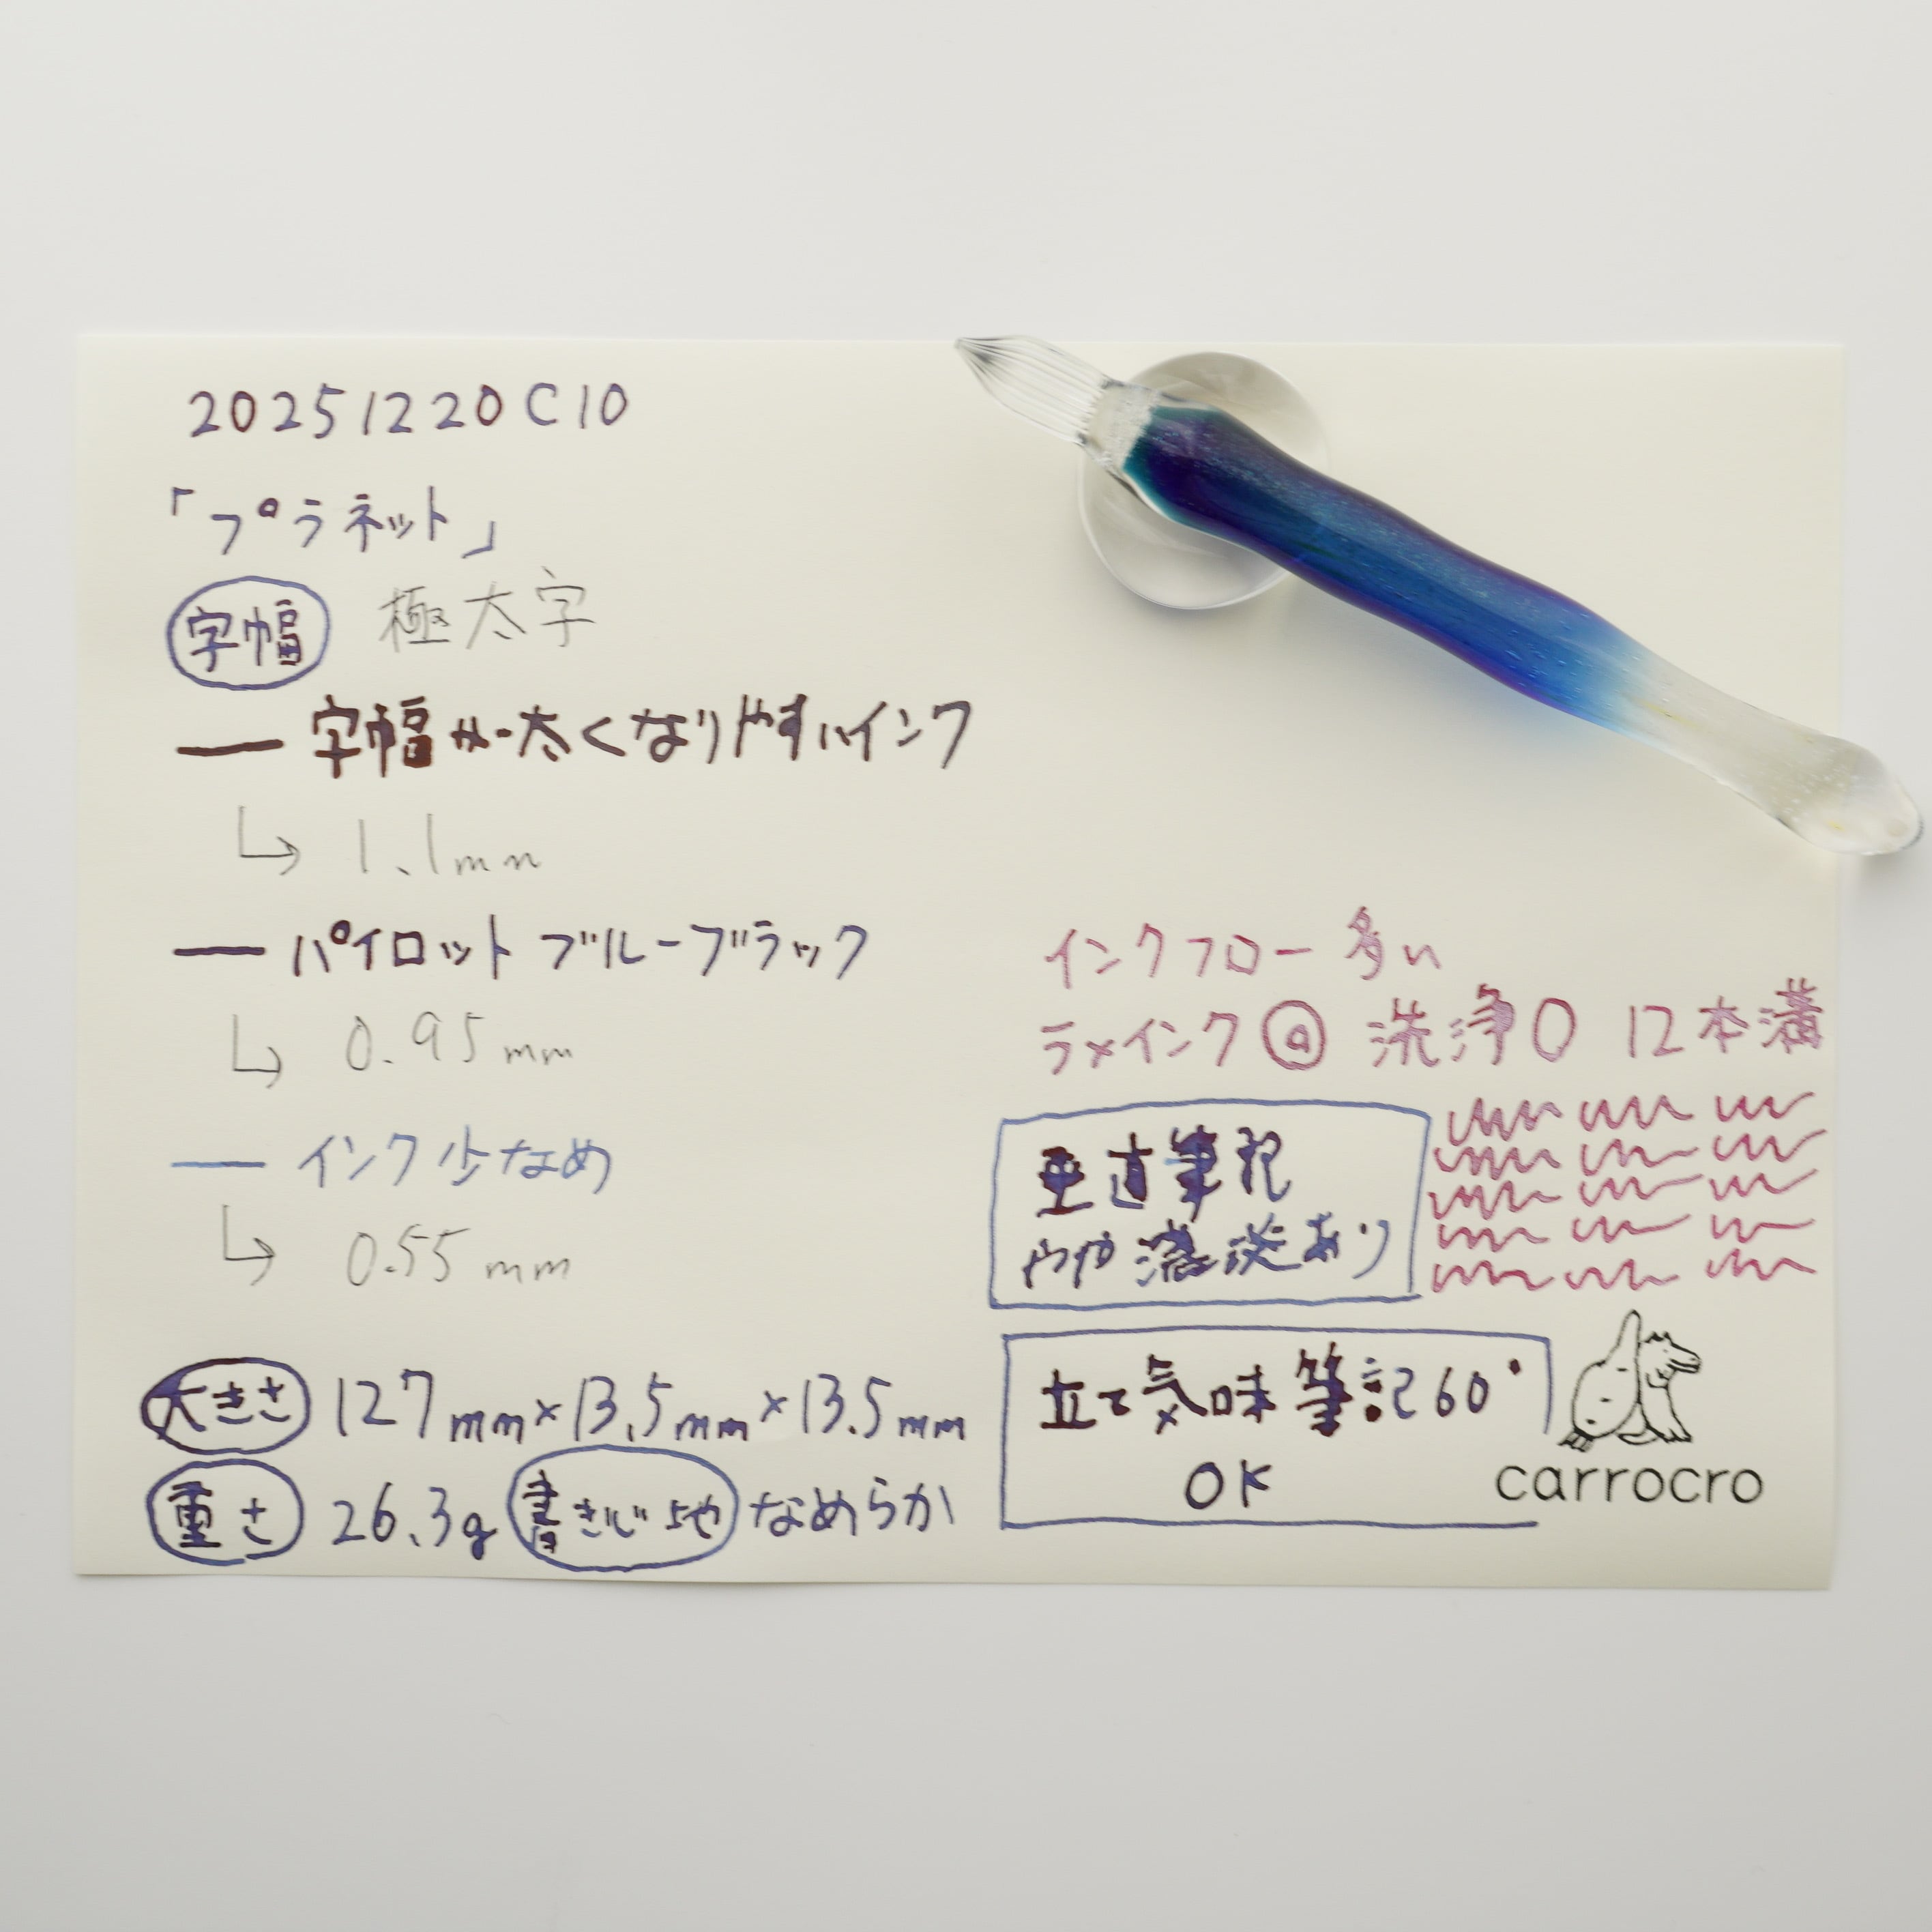 20251220C10
「プラネット」
字幅 極太字
字幅が太くなりやすいインク
1.1mm
パイロット ブルーブラック
0.95mm
インク少なめ
0.55mm
大きさ 127mm×13.5mm×13.5mm
重さ 26.3g 書き心地 なめらか
インクフロー多い
ラメインク◎ 洗浄○ 12本溝
垂直筆記
やや濃淡あり
立て気味筆記60°
OK
carrocro